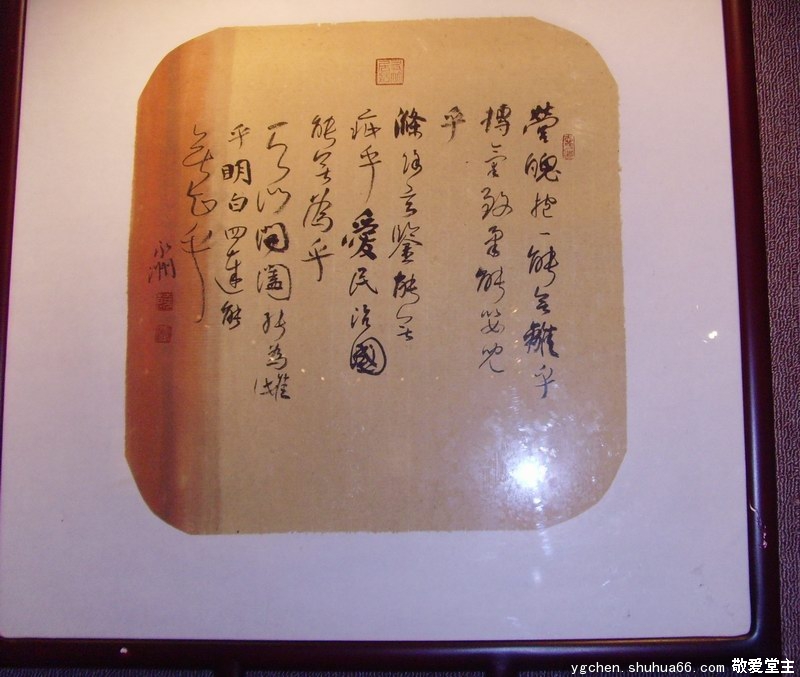 營魄抱一能無離乎
摶氣致柔能嬰兒
乎
滌除玄鑒能無
疵乎愛民治國
能無為乎
天门開闔能為雌
乎明白四達能
無知乎
ygchen.shuhua66.com 敬爱堂主